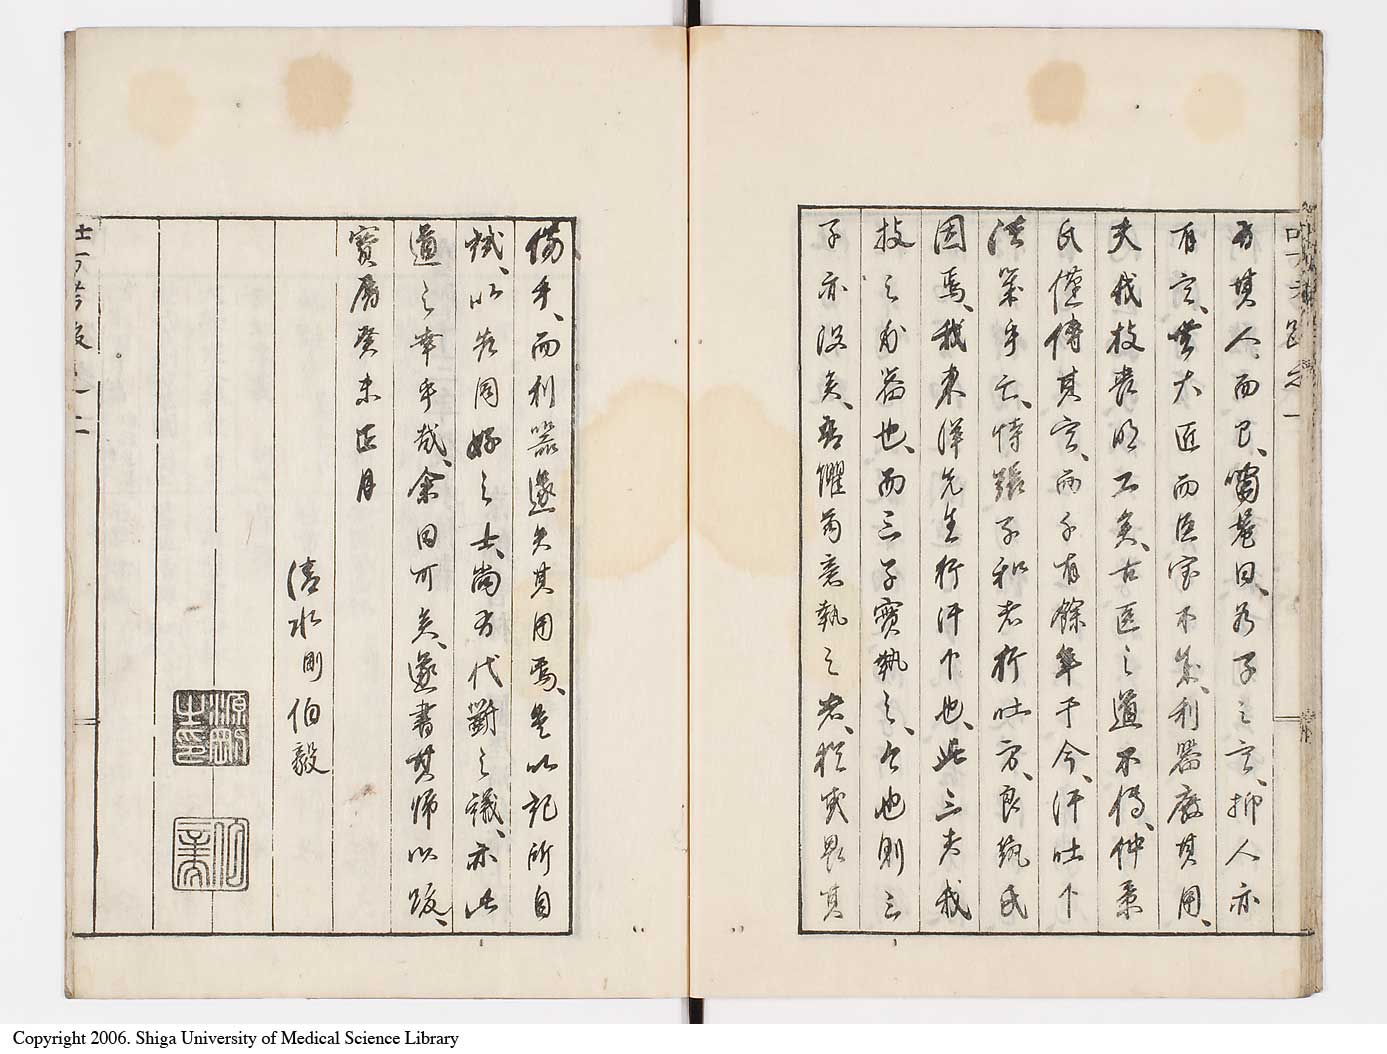 有其人而已、嘯菴曰、若子之言、抑人亦
有言、無大匠而匠室不築、利器廢其用、
夫我技喪明工矣、古医之道不傳、仲景
氏僅傳其言、而千有餘年于今、汗吐下
法幾乎亡、恃張子和者行吐方、良執氏
因焉、我東洋先生行汗下也、此三者我
技之利器也、而三子實執之、今也則三
子亦沒矣、吾懼前意執之者、猶或畏其
傷手、而利器遂失其用焉、是以記所自
試、以告同好之士、尚有代斲之譏、亦此
道之幸乎哉、余曰可矣、遂書其師以跋、
寶曆癸未正月
清水剛伯毅
源剛之印
伯毅
吐方考跋 之一
吐方考跋 之二
Copyright 2006. Shiga University of Medical Science Library